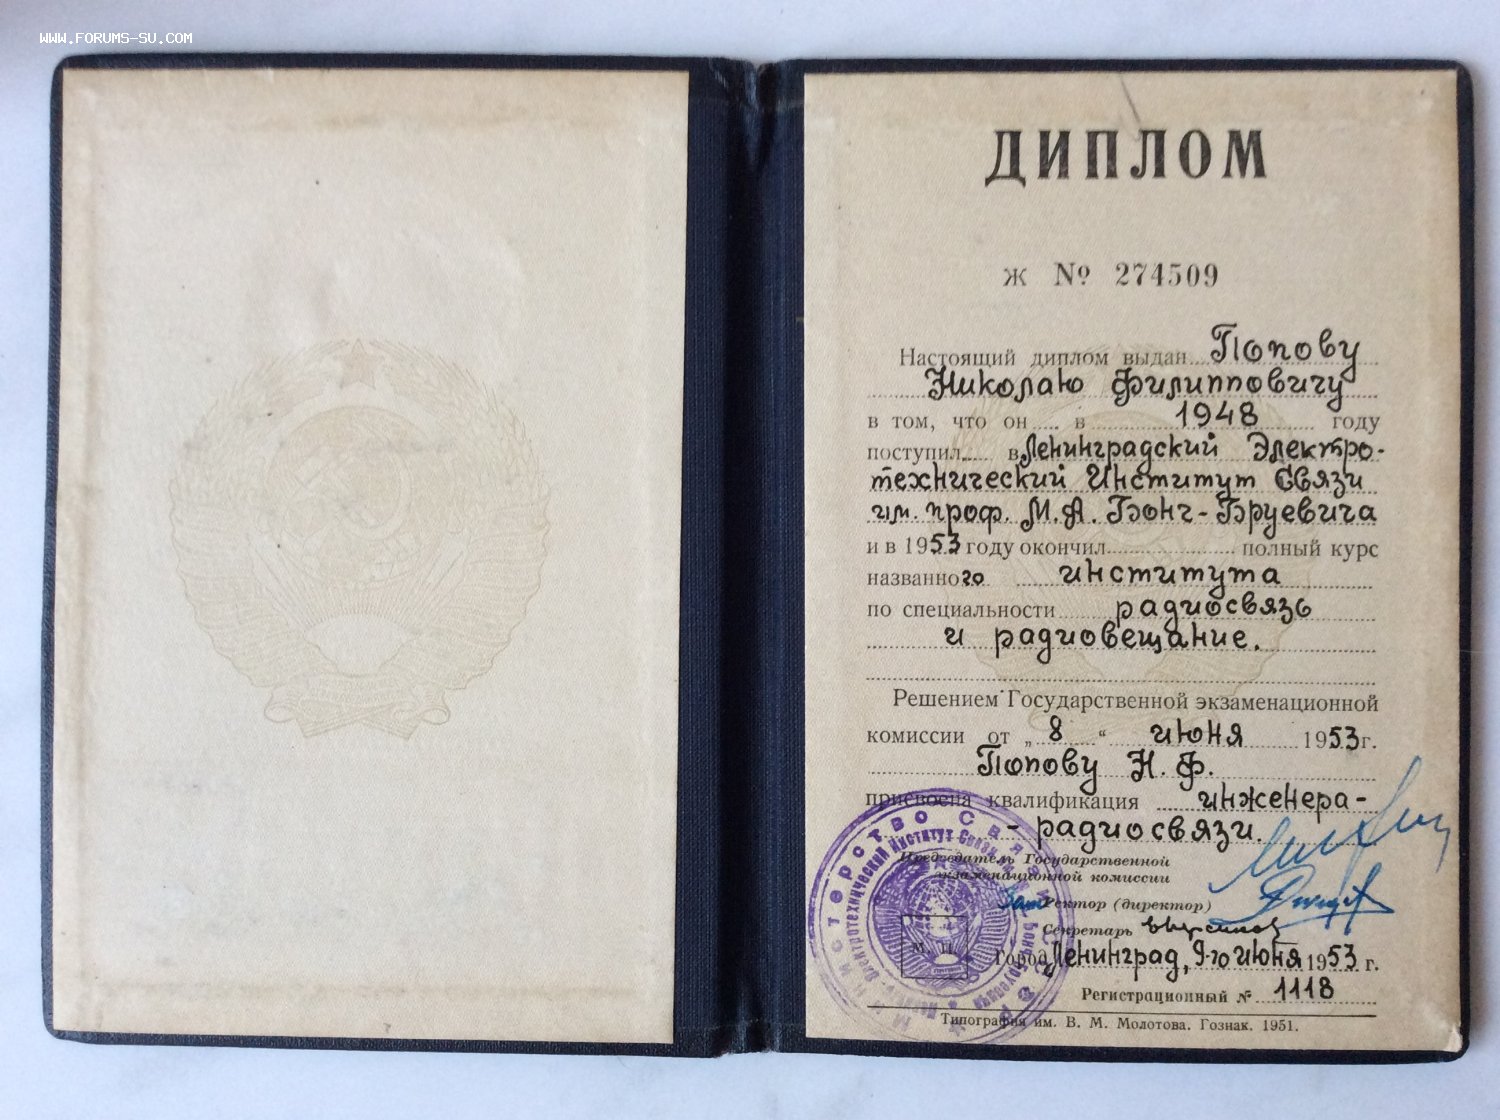 WWW.FORUMS-SU.COM
ДИПЛОМ
Ж № 274509
Настоящий диплом выдан Попову
Николаю Филипповичу
в том, что он в 1948 году
поступил в Ленинградский Электро-
технический Институт Связи
им. проф. М.А. Бонч-Бруевича
и в 1953 году окончил полный курс
названного института
по специальности радиосвязь
и радиовещание.
Решением Государственной экзаменационной
комиссии от „8“ июня 1953 г.
Попову Н. Ф.
присвоена квалификация инженера-
-радиосвязи.
Председатель Государственной
экзаменационной комиссии
Зам Ректор (директор)
Секретарь
М. П.
Город Ленинград, 9-го июня 1953 г.
Регистрационный № 1118
Типография им. В. М. Молотова. Гознак. 1951.
Министерство Связи СССР
Электротехнический Институт Связи
Бонч-Бруевича